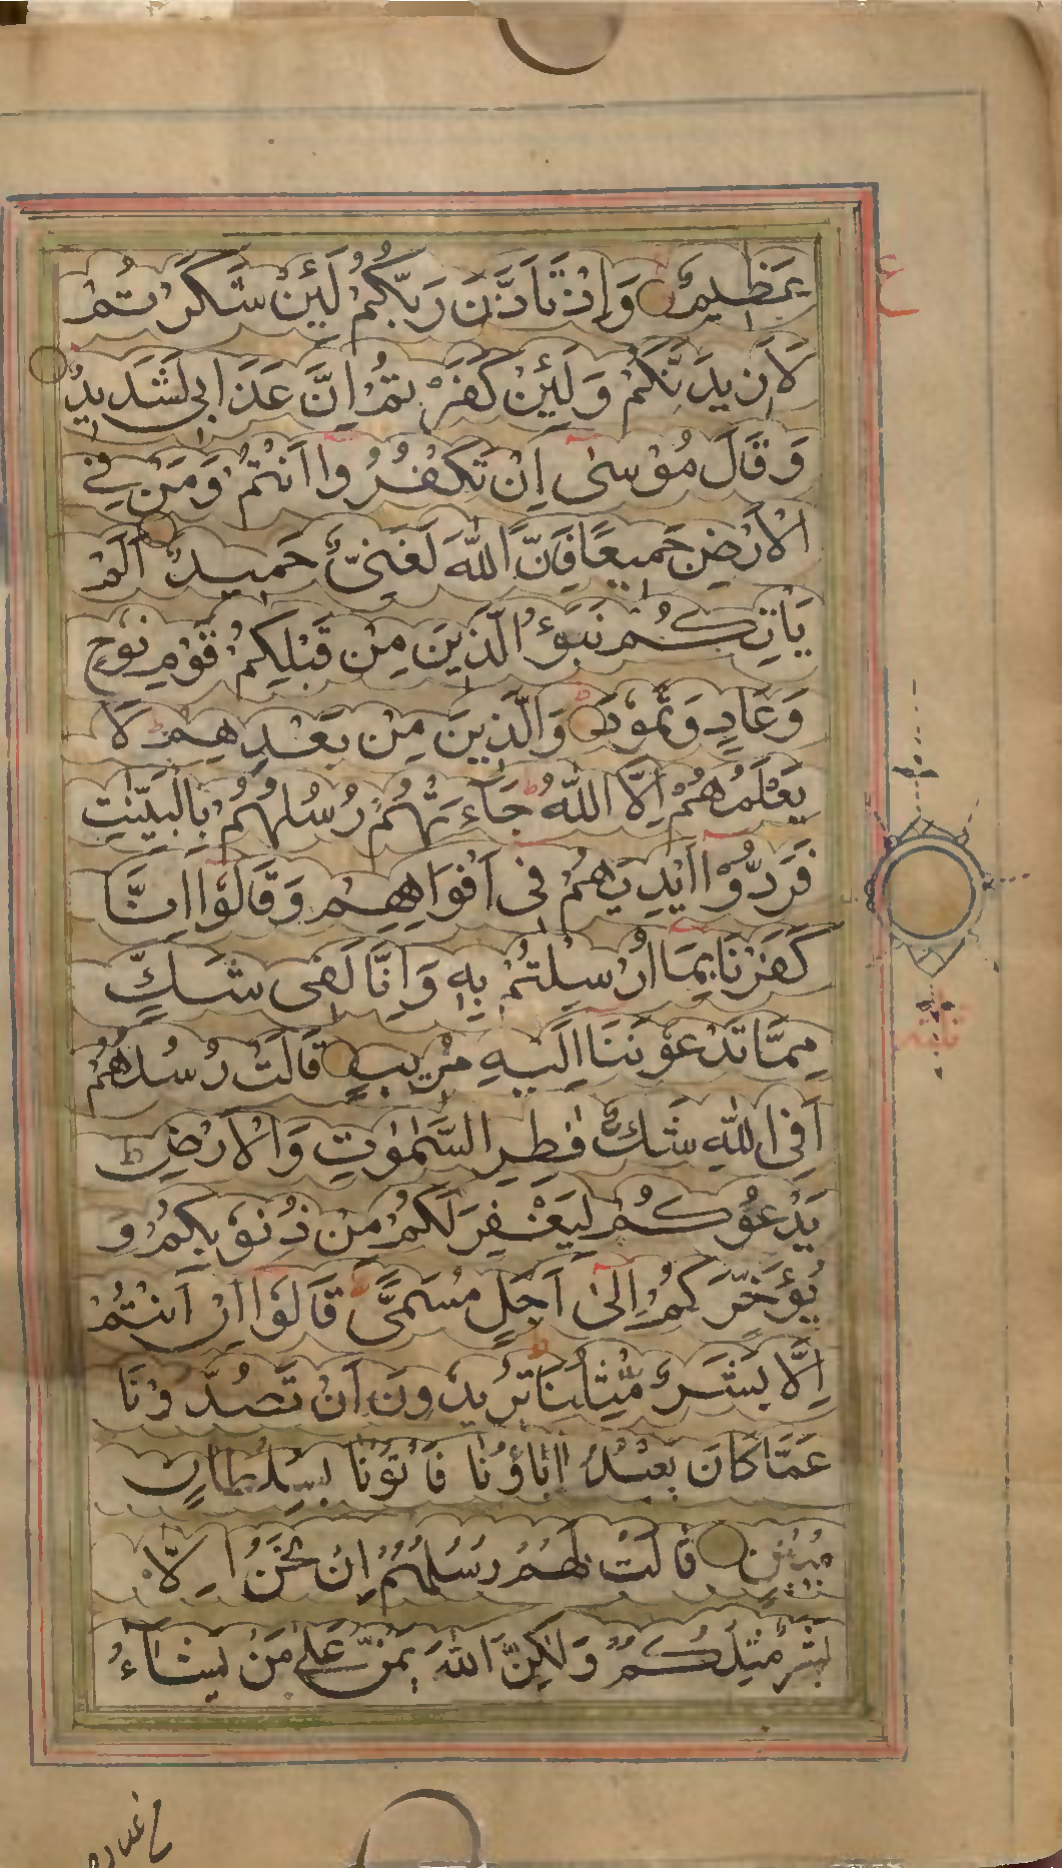 عَظِيمٌ وَاِذْ تَاَذَّنَ رَبُّكُمْ لَئِنْ شَكَرْتُمْ
لَاَزِيدَنَّكُمْ وَلَئِنْ كَفَرْتُمْ اِنَّ عَذَابِى لَشَدِيدٌ
وَقَالَ مُوْسٰى اِنْ تَكْفُرُوا اَنْتُمْ وَمَنْ فِى
الْاَرْضِ جَمِيعًا فَاِنَّ اللّٰهَ لَغَنِىٌّ حَمِيدٌ اَلَمْ
يَاْتِكُمْ نَبَؤُ الَّذِينَ مِنْ قَبْلِكُمْ قَوْمِ نُوْحٍ
وَعَادٍ وَثَمُوْدَ وَالَّذِينَ مِنْ بَعْدِهِمْ لَا
يَعْلَمُهُمْ اِلَّا اللّٰهُ جَآءَتْهُمْ رُسُلُهُمْ بِالْبَيِّنٰتِ
فَرَدُّوْا اَيْدِيَهُمْ فِى اَفْوَاهِهِمْ وَقَالُوْا اِنَّا
كَفَرْنَا بِمَا اُرْسِلْتُمْ بِهٖ وَاِنَّا لَفِى شَكٍّ
مِمَّا تَدْعُوْنَنَا اِلَيْهِ مُرِيبٍ قَالَتْ رُسُلُهُمْ
اَفِى اللّٰهِ شَكٌّ فَاطِرِ السَّمٰوٰتِ وَالْاَرْضِ
يَدْعُوْكُمْ لِيَغْفِرَ لَكُمْ مِنْ ذُنُوْبِكُمْ وَ
يُؤَخِّرَكُمْ اِلٰى اَجَلٍ مُسَمًّى قَالُوْا اِنْ اَنْتُمْ
اِلَّا بَشَرٌ مِثْلُنَا تُرِيدُوْنَ اَنْ تَصُدُّوْنَا
عَمَّا كَانَ يَعْبُدُ اٰبَاؤُنَا فَاْتُوْنَا بِسُلْطَانٍ
مُبِينٍ قَالَتْ لَهُمْ رُسُلُهُمْ اِنْ نَحْنُ اِلَّا
بَشَرٌ مِثْلُكُمْ وَلٰكِنَّ اللّٰهَ يَمُنُّ عَلٰى مَنْ يَشَآءُ